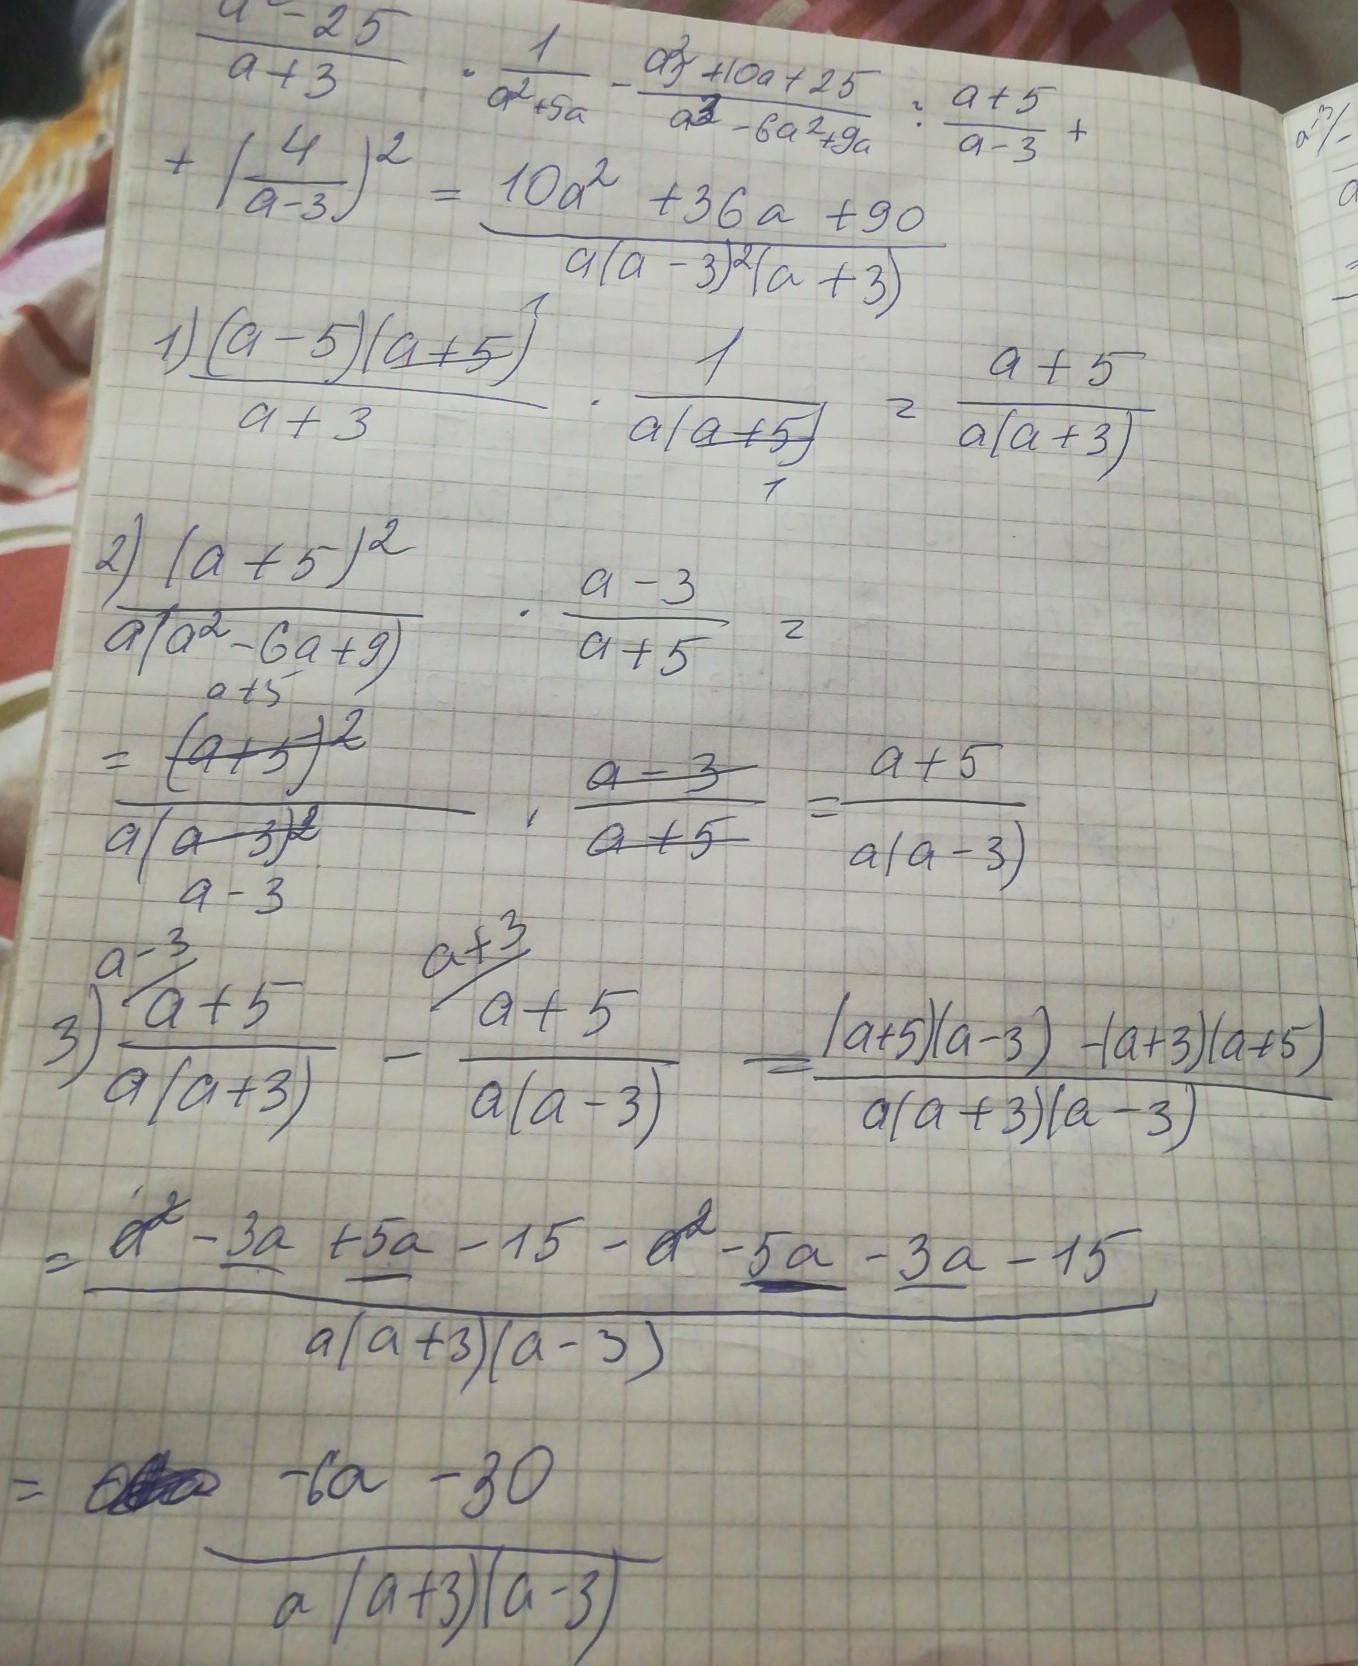 a² - 25 / a + 3 · 1 / a² + 5a - a² + 10a + 25 / a³ - 6a² + 9a : a + 5 / a - 3 +
+ (4 / a - 3)² = 10a² + 36a + 90 / a(a - 3)²(a + 3)
1) (a - 5)(a + 5) 1 / a + 3 · 1 / a(a + 5) 1 = a + 5 / a(a + 3)
2) (a + 5)² / a(a² - 6a + 9) · a - 3 / a + 5 =
= (a + 5)² a + 5 / a(a - 3)² a - 3 · a - 3 / a + 5 = a + 5 / a(a - 3)
3) a - 3 / a + 5 / a(a + 3) - a + 3 / a + 5 / a(a - 3) = (a + 5)(a - 3) - (a + 3)(a + 5) / a(a + 3)(a - 3)
= a² - 3a + 5a - 15 - a² - 5a - 3a - 15 / a(a + 3)(a - 3)
= -6a - 30 / a(a + 3)(a - 3)